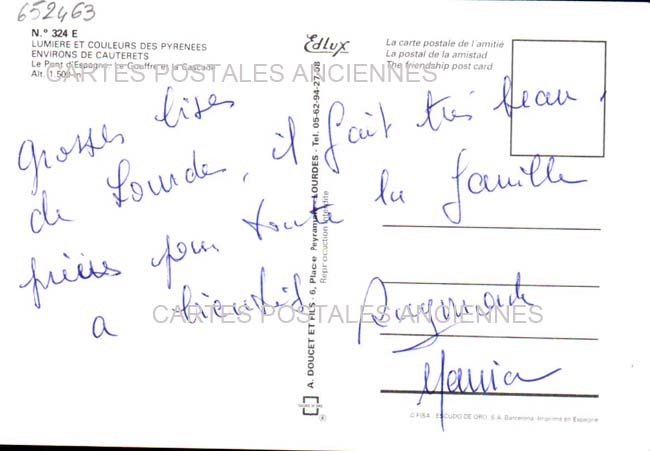 652463
N.° 324 E
LUMIERE ET COULEURS DES PYRENEES
ENVIRONS DE CAUTERETS
Le Pont d'Espagne - Le Gouffre et la Cascade
Alt. 1.500 m
Edlux
La carte postale de l'amitié
La postal de la amistad
The friendship post card
CARTES POSTALES ANCIENNES
Grosses bises
de Lourdes, il fait très beau
prières pour toute la famille
a bientôt Raymonde
Maria
CARTES POSTALES ANCIENNES
A. DOUCET ET FILS - 6, Place Peyramale - LOURDES - Tel. 05-62-94-27-08
Reproduction interdite
© FISA - ESCUDO DE ORO, S.A. Barcelona. Imprimé en Espagne